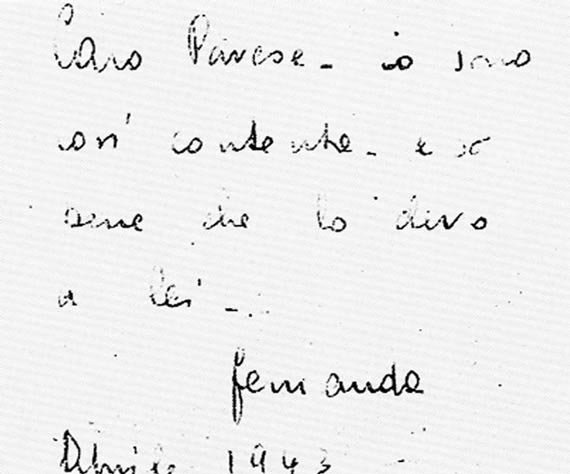 Caro Pavese - io sono
così contenta - e so
bene che lo devo
a lei -
Fernanda
Aprile 1943